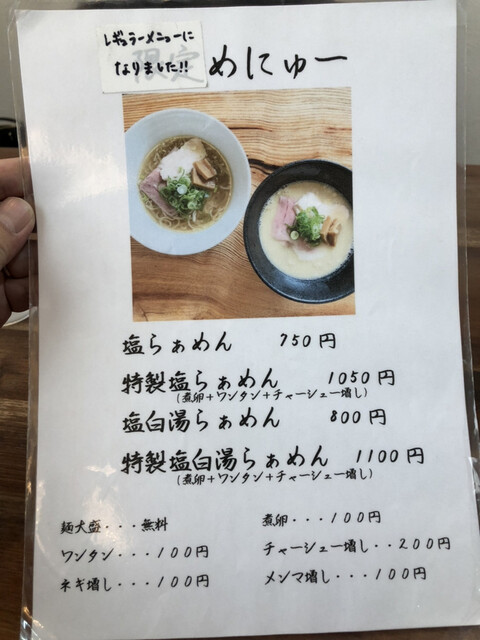 レギュラーメニューに
なりました!!
限定 めにゅー
塩らぁめん 750円
特製塩らぁめん 1050円
(煮卵+ワンタン+チャーシュー増し)
塩白湯らぁめん 800円
特製塩白湯らぁめん 1100円
(煮卵+ワンタン+チャーシュー増し)
麺大盛・・・無料 煮卵・・・100円
ワンタン・・・100円 チャーシュー増し・・200円
ネギ増し・・・100円 メンマ増し・・・100円